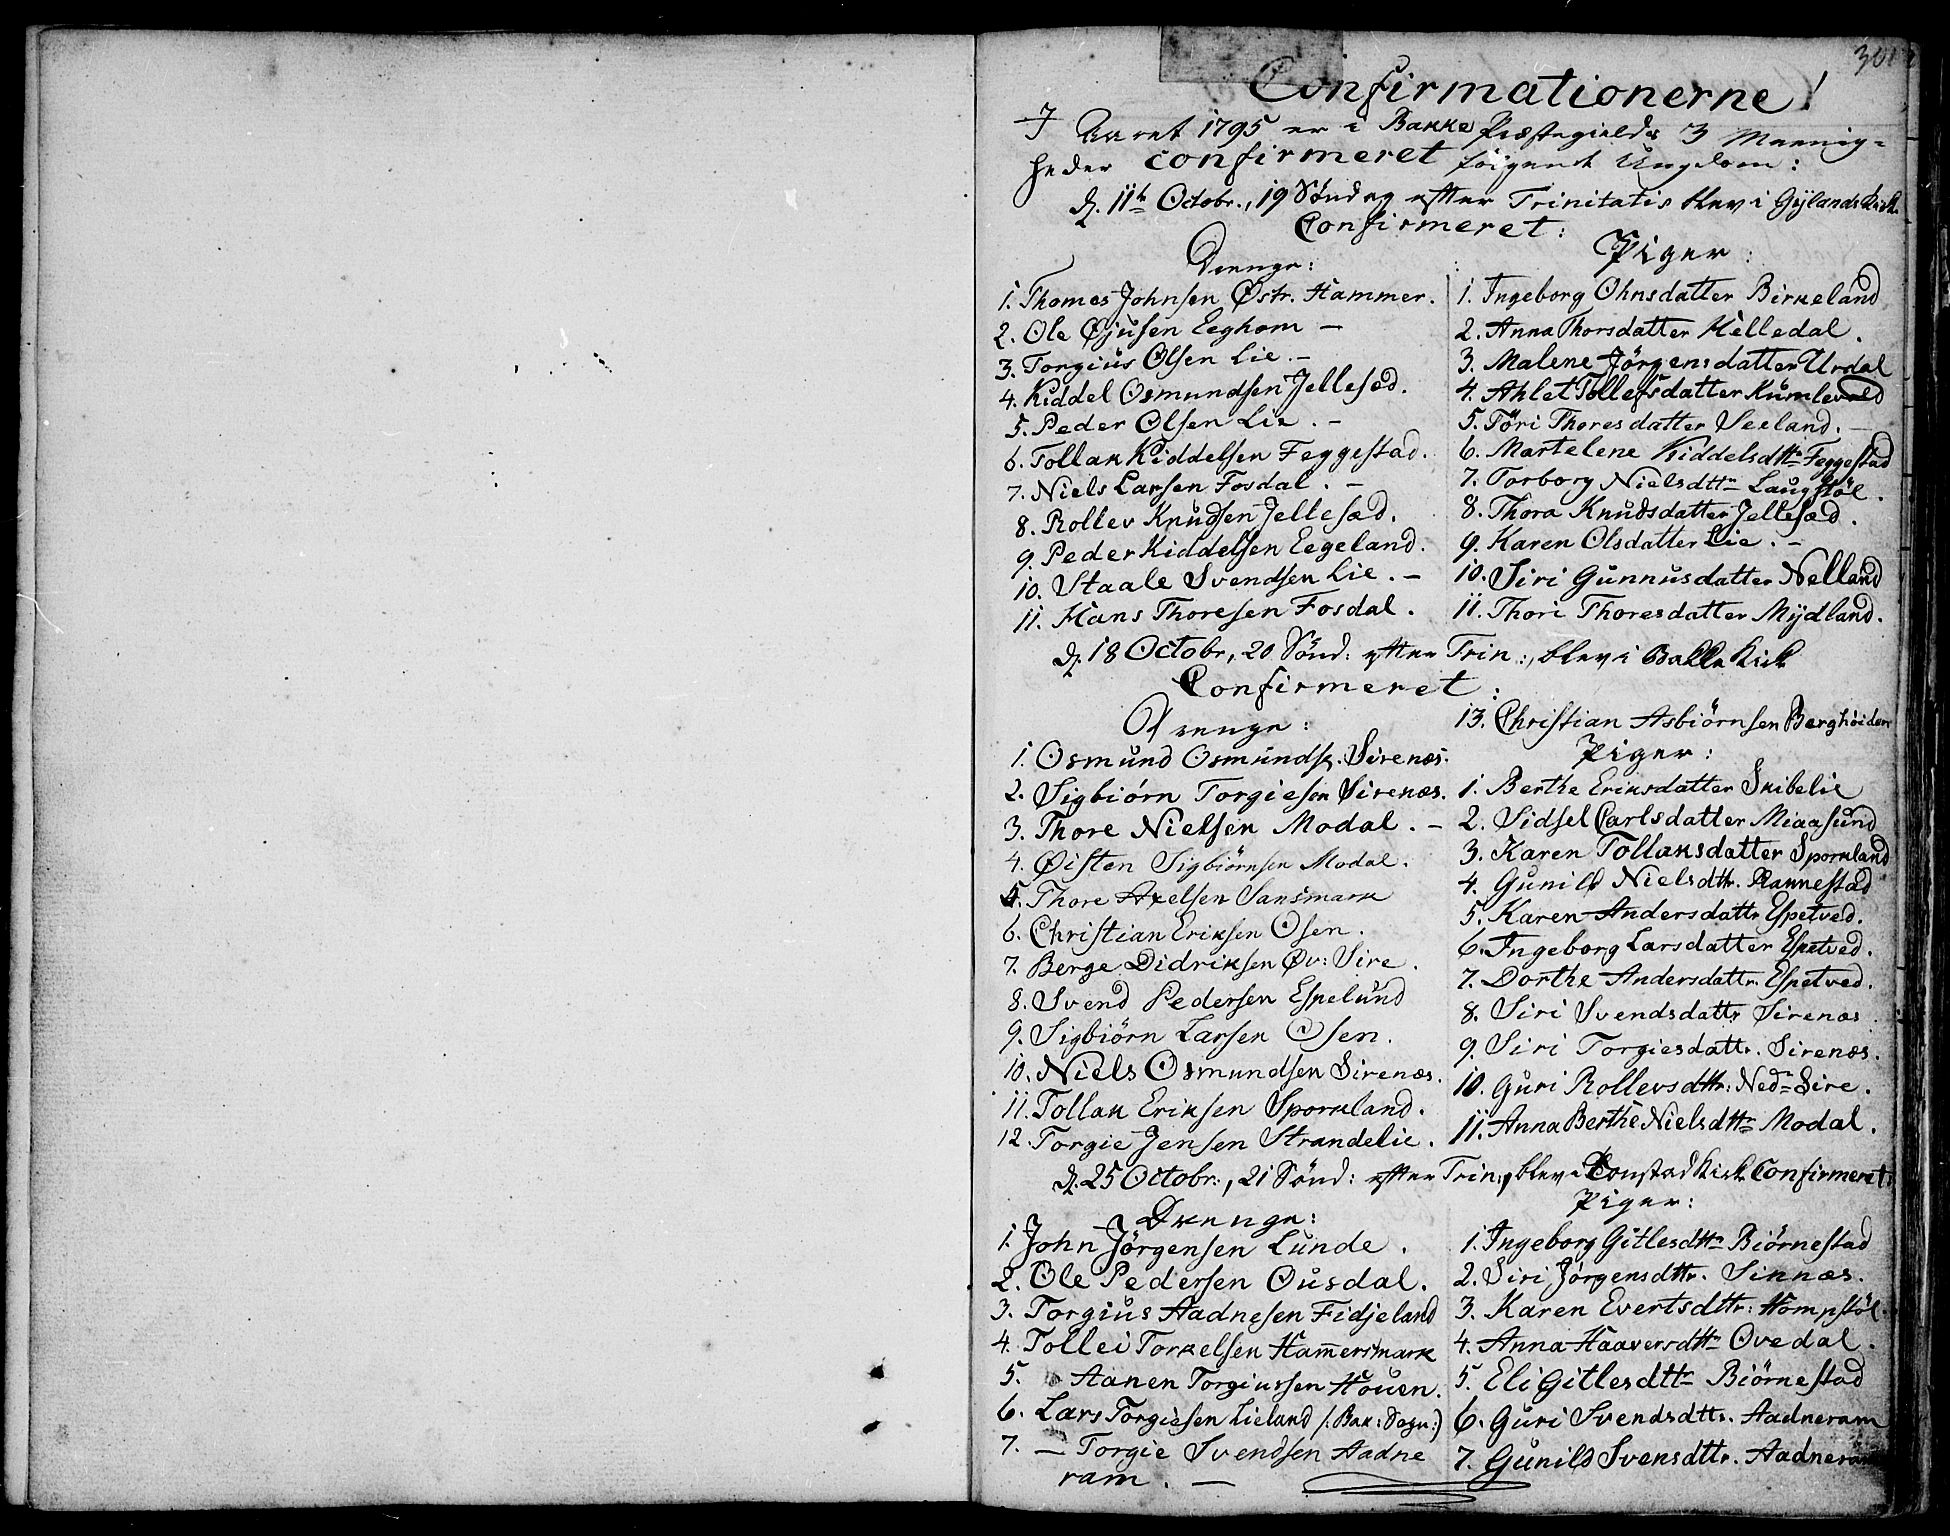 301
Confirmationerne!
I Aaret 1795 er i Bakke Præstegields 3 Meenig=
heder confirmeret følgende Ungdom:
d. 11te Octobr., 19 Søndag efter Trinitatis blev i Gylands Kirk.
Confirmeret:
Drenge:
1. Thomas Johnsen Østr. Hammer.
2. Ole Øjusen Eeghom —
3. Torgius Olsen Lie. —
4. Kiddel Osmundsen Jellesæd.
5. Peder Olsen Lie. —
6. Tollak Kiddelsen Feggestad.
7. Niels Larsen Fosdal. —
8. Rollev Knudsen Jellesæd.
9. Peder Kiddelsen Eegeland.
10. Staale Svendsen Lie. —
11. Hans Thoresen Fosdal.
Piger:
1. Ingeborg Ohnsdatter Birkeland
2. Anna Thorsdatter Helledal.
3. Malene Jörgensdatter Urdal
4. Ahlet Tollefsdatter Kumlevold
5. Töri Thoresdatter Veeland. —
6. Martelene Kiddelsdttr Feggestad
7. Torborg Nielsdttr Laugstöl.
8. Thora Knudsdatter Jellesæd.
9. Karen Olsdatter Lie. —
10. Siri Gunnusdatter Nelland
11. Thori Thoresdatter Mydland.
d. 18 Octobr, 20 Sönd: efter Trin:, blev i Bakke Kirk
Confirmeret:
Drenge:
1. Osmund Osmunds. Sirenæs.
2. Sigbiörn Torgiesen Sirenæs.
3. Thore Nielsen Modal. —
4. Øisten Sigbiörnsen Modal.
5. Thore Axelsen Sansmark
6. Christian Eriksen Osen.
7. Berge Didriksen Øv: Sire.
8. Svend Pedersen Espelund
9. Sigbiörn Larsen Osen.
10. Niels Osmundsen Sirenæs.
11. Tollak Eriksen Sporkland.
12. Torgie Jensen Strandelie.
13. Christian Asbiörnsen Berghöiden
Piger:
1. Berthe Eriksdatter Skibelie
2. Sidsel Carlsdatter Miaasund
3. Karen Tollaksdatter Sporkland
4. Gunild Nielsdttr. Rannestad
5. Karen Andersdattr Espetved.
6. Ingeborg Larsdatter Espetved.
7. Dorthe Andersdattr. Espetved.
8. Siri Svendsdattr Sirenæs
9. Siri Torgiesdattr. Sirenæs.
10. Guri Rollevsdttr: Ned= Sire.
11. Anna Berthe Nielsdttr Modal.
d. 25 Octobr., 21 Sönd: efter Trin:, blev i Tonstad Kirk Confirmeret:
Drenge:
1. John Jörgensen Lunde.
2. Ole Pedersen Ousdal.
3. Torgius Aadnesen Fidjeland
4. Tollei Torkelsen Hamersmark
5. Aanen Torgiussen Houen.
6. Lars Torgiesen Lieland /: Bak: Sogn:/
7. — Torgie Svendsen Aadne
ram. —
Piger:
1. Ingeborg Gitlesdttr Biörnestad
2. Siri Jörgensdttr. Sinnæs.
3. Karen Evertsdttr: Hompstöl.
4. Anna Haaversdttr Ovedal.
5. Eli Gitlesdttr Biörnestad
6. Guri Svendsdttr. Aadneram
7. Gunild Svensdttr. Aadneram